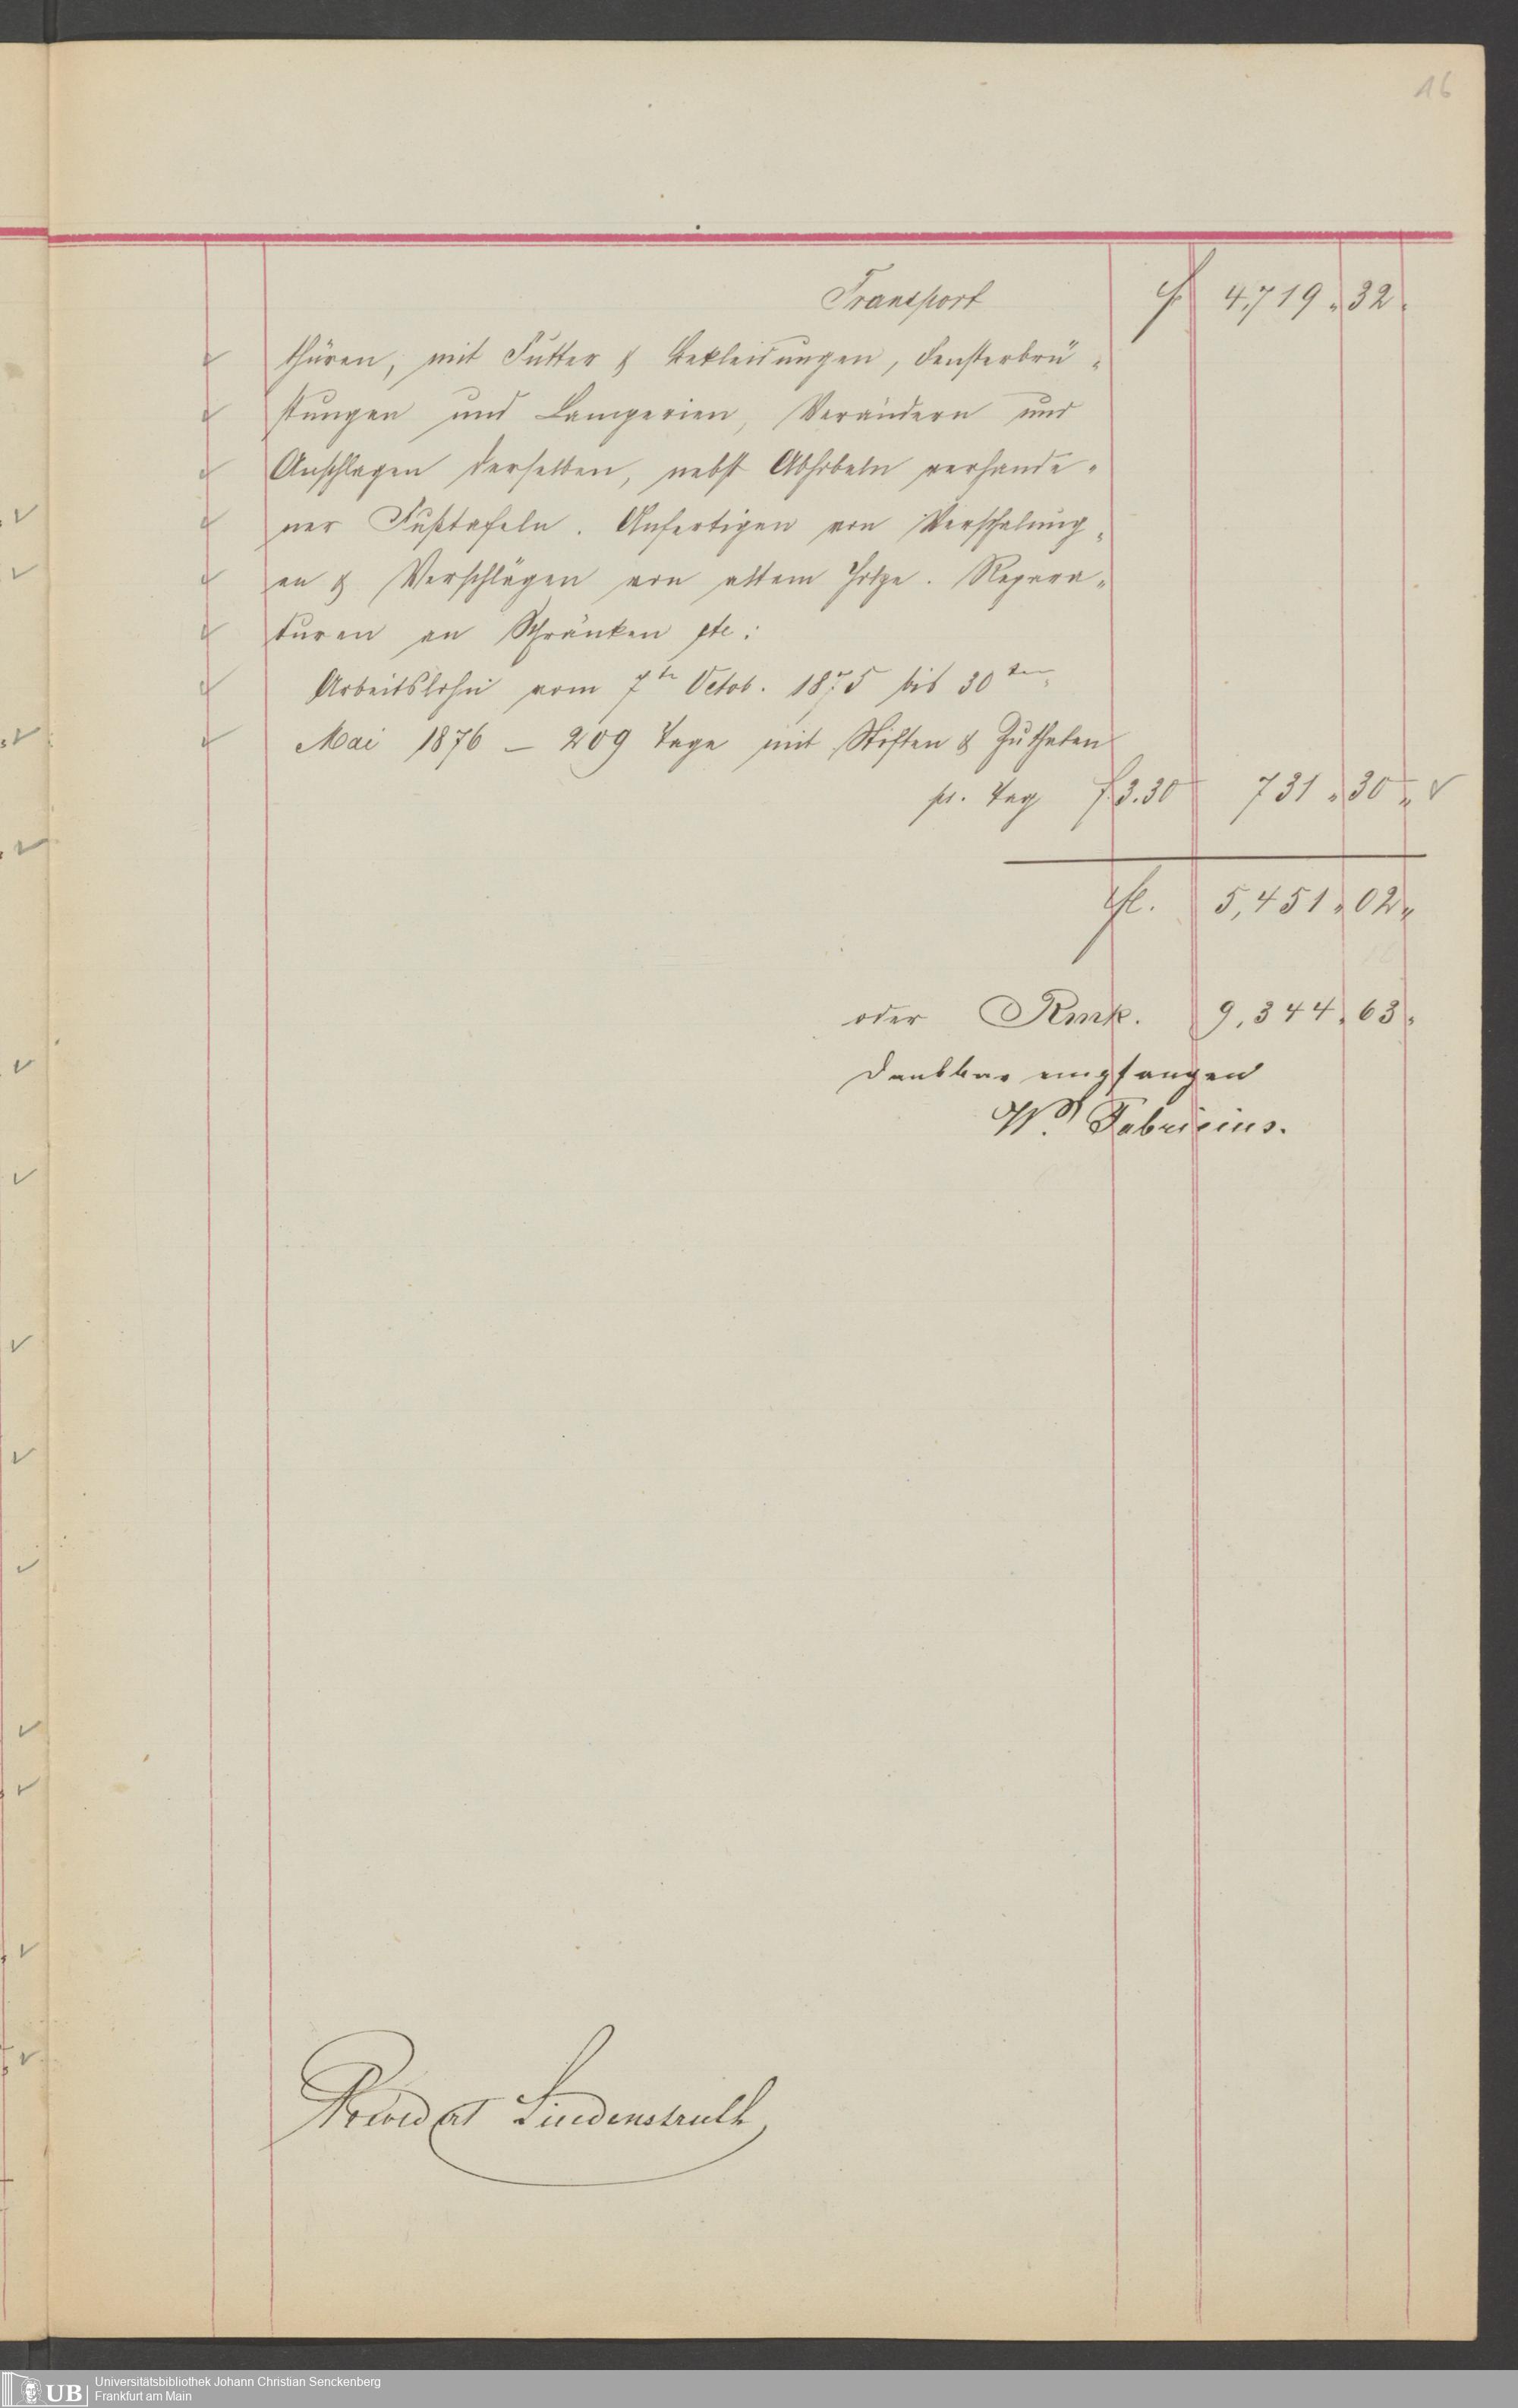 16
Transport f 4,719 „ 32 „
thüren, mit Futter & Bekleidungen, Fensterbrü „
stungen und Lamperien, Verändern und
Anschlagen derselben, nebst Abhobeln vorhande „
ner Fußtafeln. Anfertigen von Verschalung „
en & Verschlägen von altem Holze. Repara „
turen an Schränken etc:
Arbeitslohn vom 7te Octob. 1875 bis 30ten
Mai 1876 – 209 Tage mit Stiften & Zuthaten
pr. Tag f 3.30 731 „ 30 „
fl. 5,451 „ 02 „
oder Rmk. 9,344 „ 63 „
Dankbar empfangen
Wd Fabricius.
Lindenstruth
UB Universitätsbibliothek Johann Christian Senckenberg
Frankfurt am Main